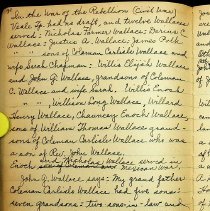 "In the War of the Rebellion (Civil War)
Veale Tp. had no draft, and twelve Wallaces
served: Nicholas Farmer Wallace; Marcus C.
Wallace; Justus A. Wallace; James Polk
Wallace - sons of Coleman Carlisle Wallace and
wife Sarah Chapman: Willis Elijah Wallace
and John G. Wallace, grandsons of Coleman
C. Wallace and wife Sarah. Willis Enoch
" " , William Long Wallace, Willard
Henry Wallace, Chauncey Enochs Wallace,
sons of William Thomas Wallace grand-
sons of Coleman Carlisle Wallace who was
a son of Rev. John Wallace.
Enoch and Nicholas Wallace served in
Mexican War.
John G. Wallace says: My grand father
Coleman Carlisle Wallace had five sons:
seven grandsons: two sons-in-law under